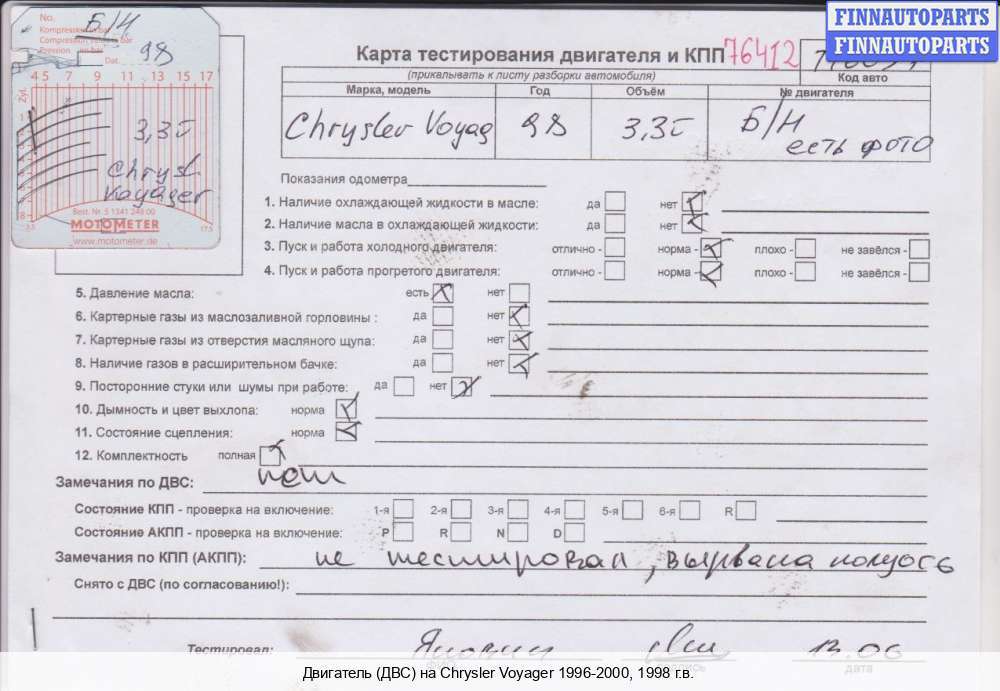 FINNAUTOPARTS
FINNAUTOPARTS
No.
Б/Н
Kompression in bar
Compression values in bar
Pression en bar
Dat. 98
4 5 7 9 11 13 15 17
Zyl.
3,3i
Chrysl
Voyager
8
3.5 17.5
Best. Nr. 5 1341 248 00
MOTOMETER
www.motometer.de
Карта тестирования двигателя и КПП 76412
(прикалывать к листу разборки автомобиля) Код авто
Марка, модель Год Объём № двигателя
Chrysler Voyag 98 3,3i Б/Н
есть фото
Показания одометра
1. Наличие охлаждающей жидкости в масле: да нет
2. Наличие масла в охлаждающей жидкости: да нет
3. Пуск и работа холодного двигателя: отлично - норма - плохо - не завёлся -
4. Пуск и работа прогретого двигателя: отлично - норма - плохо - не завёлся -
5. Давление масла: есть нет
6. Картерные газы из маслозаливной горловины : да нет
7. Картерные газы из отверстия масляного щупа: да нет
8. Наличие газов в расширительном бачке: да нет
9. Посторонние стуки или шумы при работе: да нет
10. Дымность и цвет выхлопа: норма
11. Состояние сцепления: норма
12. Комплектность полная
Замечания по ДВС: нет
Состояние КПП - проверка на включение: 1-я 2-я 3-я 4-я 5-я 6-я R
Состояние АКПП - проверка на включение: P R N D
Замечания по КПП (АКПП): не тестировал, вырвана полуось
Снято с ДВС (по согласованию!):
Тестировал: 13.06
дата
Двигатель (ДВС) на Chrysler Voyager 1996-2000, 1998 г.в.